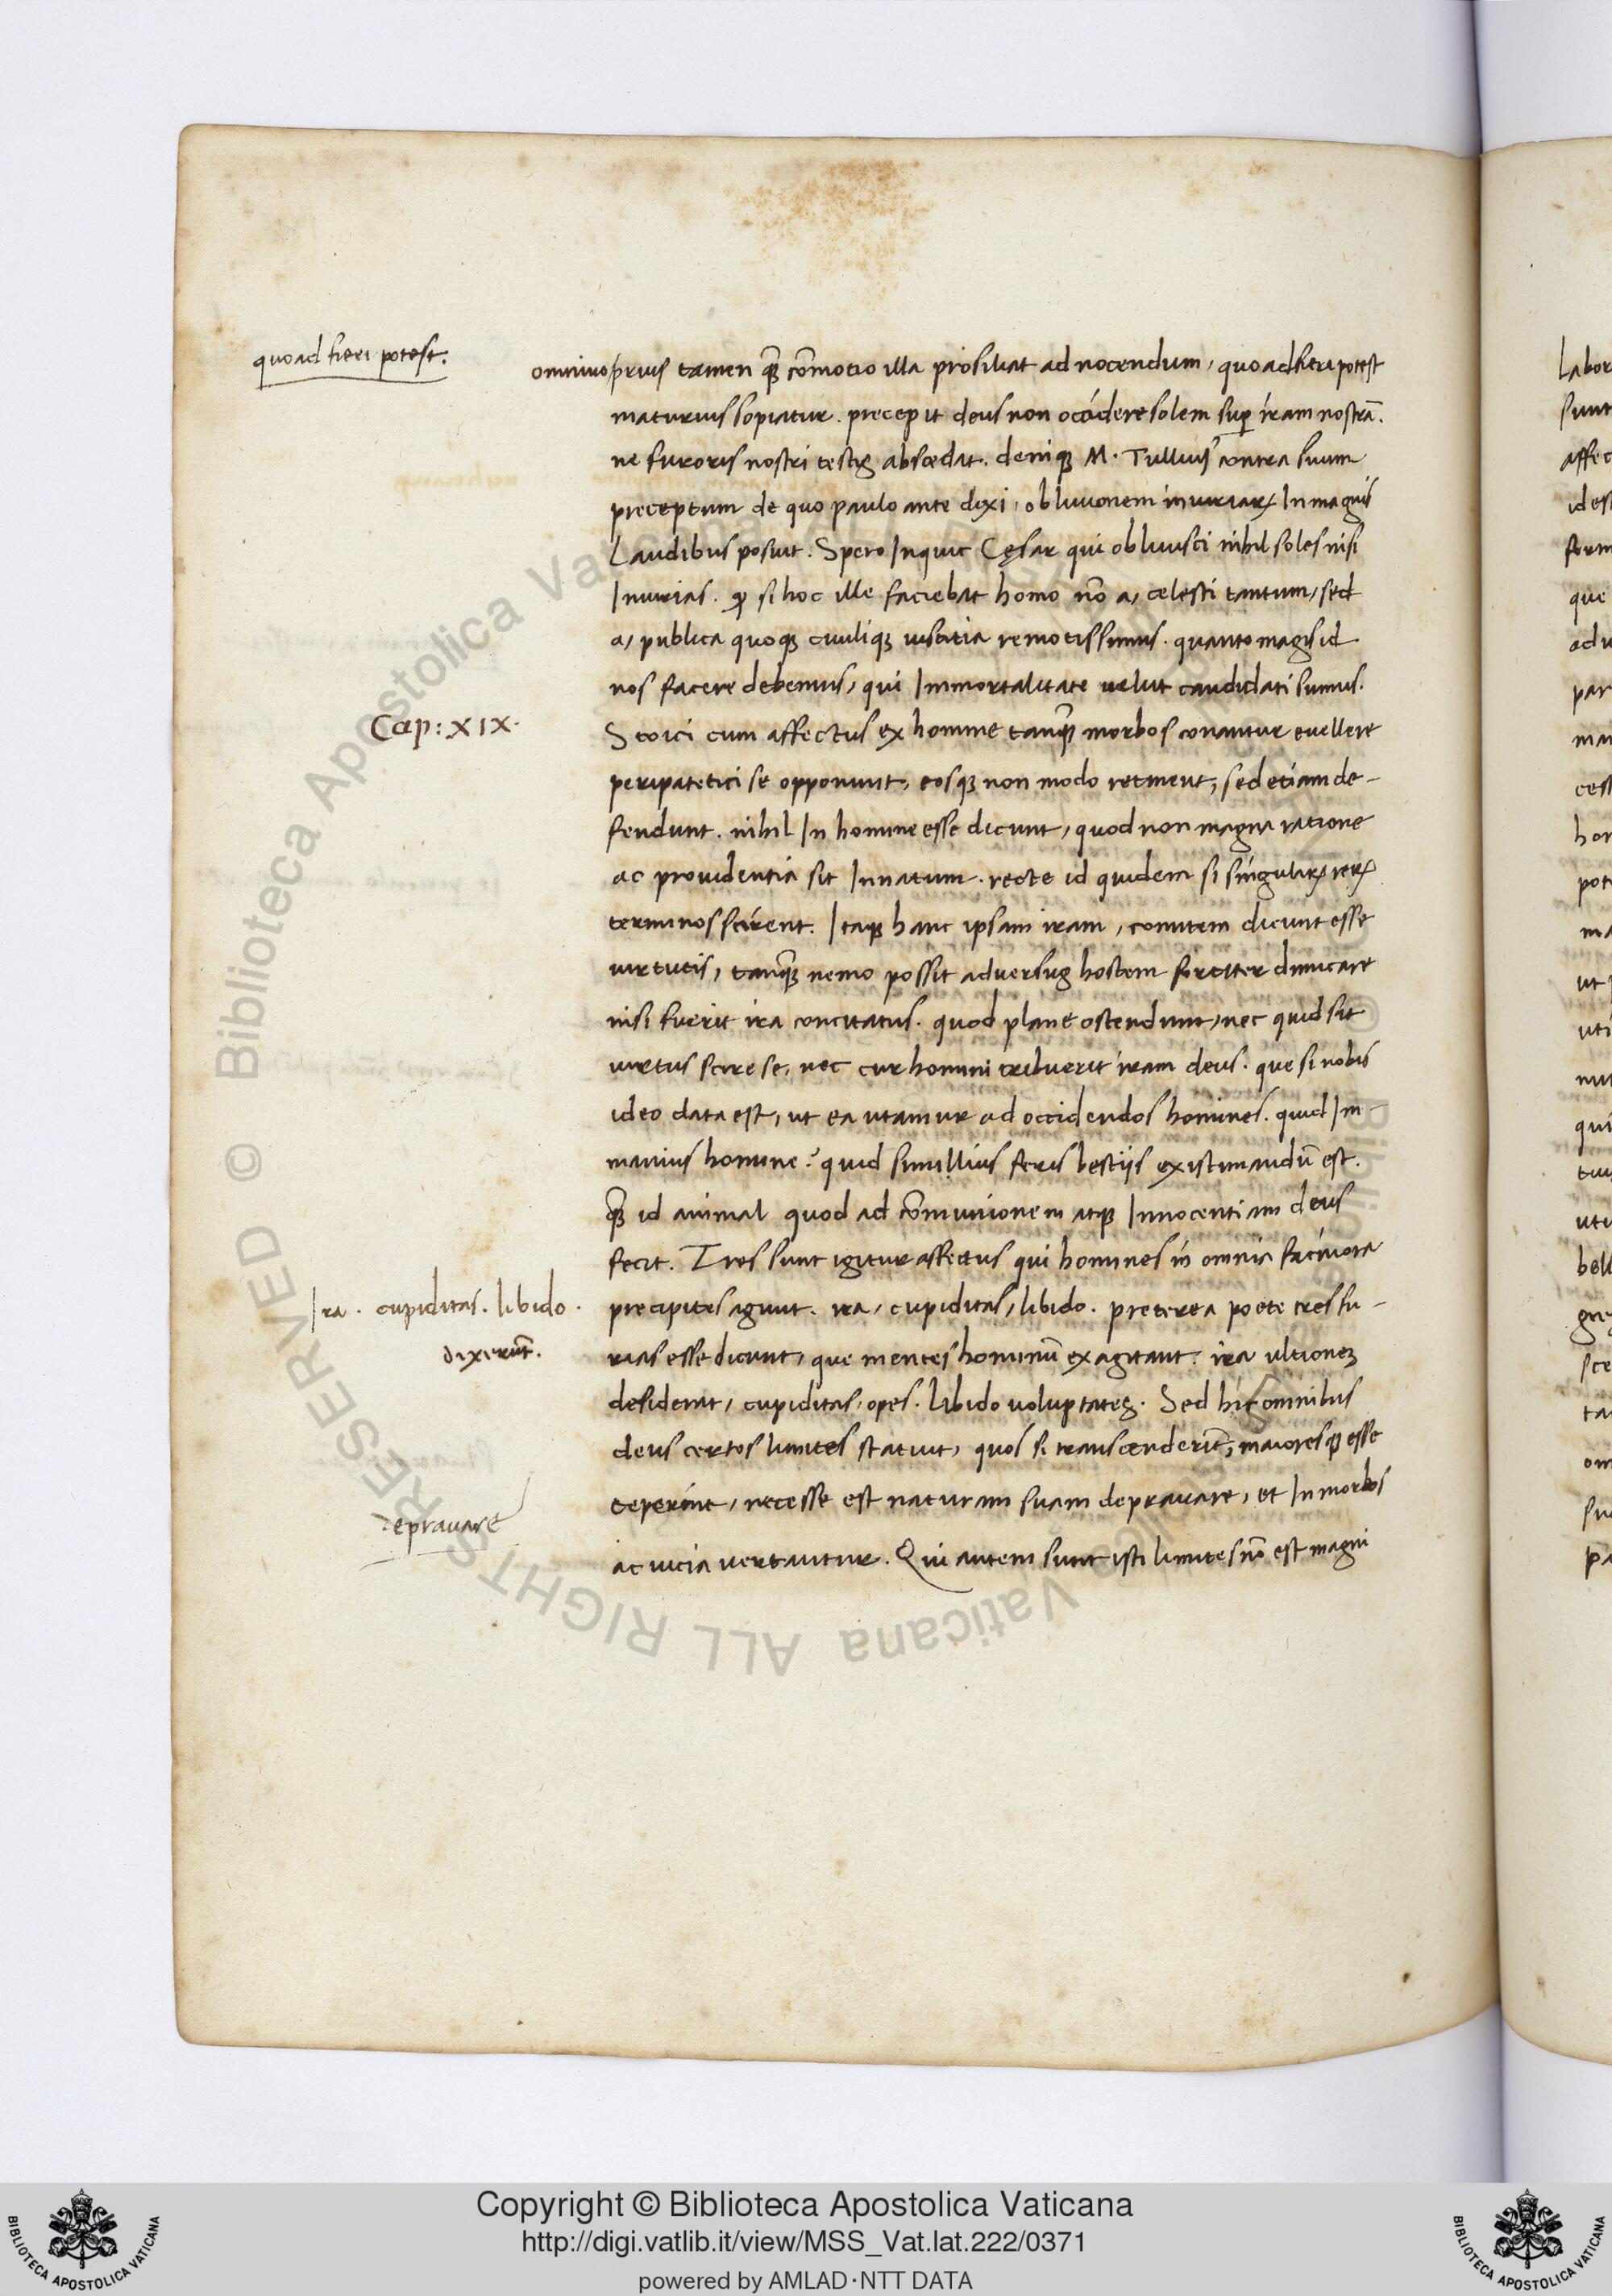 quoad fieri potest.
omnino/prius tamen qȝ cōmotio illa prosiliat ad nocendum, quoad fieri potest
maturius sopiatur. precepit deus non occidere solem sup iram nostrā.
ne furoris nostri testis abscedat. deniqȝ M. Tullius contra suum
preceptum de quo paulo ante dixi, obliuionem iniuriaꝝ In magnis
Laudibus posuit. Spero Inquit Cęsar qui obliuisci nihil soles nisi
Iniurias. ꝙ si hoc ille faciebat homo nō a, celesti tantum, sed
a, publica quoqȝ ciuiliqȝ iustitia remotissimus. quanto magis id
nos facere debemus, qui Immortalitate uelut candidati sumus.
Cap: XIX.
Stoici cum affectus ex homine tanqȝ morbos conantur euellere
peripatetici se opponunt, eosqȝ non modo retinent, sed etiam de-
fendunt. nihil In homine esse dicunt, quod non magna ratione
ac prouidentia sit Innatum. recte id quidem si singulaꝝ reꝝ
terminos scirent. Itaqȝ hanc ipsam iram, conutem dicunt esse
uirtutis, tanqȝ nemo possit aduersus hostem fortiter dimicare
nisi fuerit ira concitatus. quod plane ostendunt, nec quid sit
uirtus scire se, nec cur homini tribuerit iram deus. que si nobis
ideo data est, ut ea utamur ad occidendos homines. quid Im-
manius homine? quid simillius feris bestiis existimandū est.
qȝ id animal quod ad cōmunionem atqȝ Innocentiam deus
fecit. Tres sunt igitur affectus qui homines in omnia facinora
Ira. cupiditas. libido.
precipites agunt. ira, cupiditas, libido. preterea poete tres fu-
dixerūt.
rias esse dicunt, que mentes hominū exagitant. ira ultionem
desiderat, cupiditas, opes. libido uoluptates. Sed his omnibus
deus certos limites statuit, quos si transcenderīt, maioresqȝ esse
ceperint, necesse est naturam suam deprauare, et In morbos
deprauare
ac uicia uertantur. Qui autem sunt isti limites nō est magni
Labor
sunt
affec
ides
form
que
adu
par
man
cess
hor
pote
ma
ut
uti
nut
qui
tus
utu
bell
gre
sce
ta
om
su
pa
© Biblioteca Apostolica Vaticana ALL RIGHTS RESERVED
Copyright © Biblioteca Apostolica Vaticana
http://digi.vatlib.it/view/MSS_Vat.lat.222/0371
powered by AMLAD·NTT DATA
BIBLIOTECA APOSTOLICA VATICANA
BIBLIOTECA APOSTOLICA VATICANA